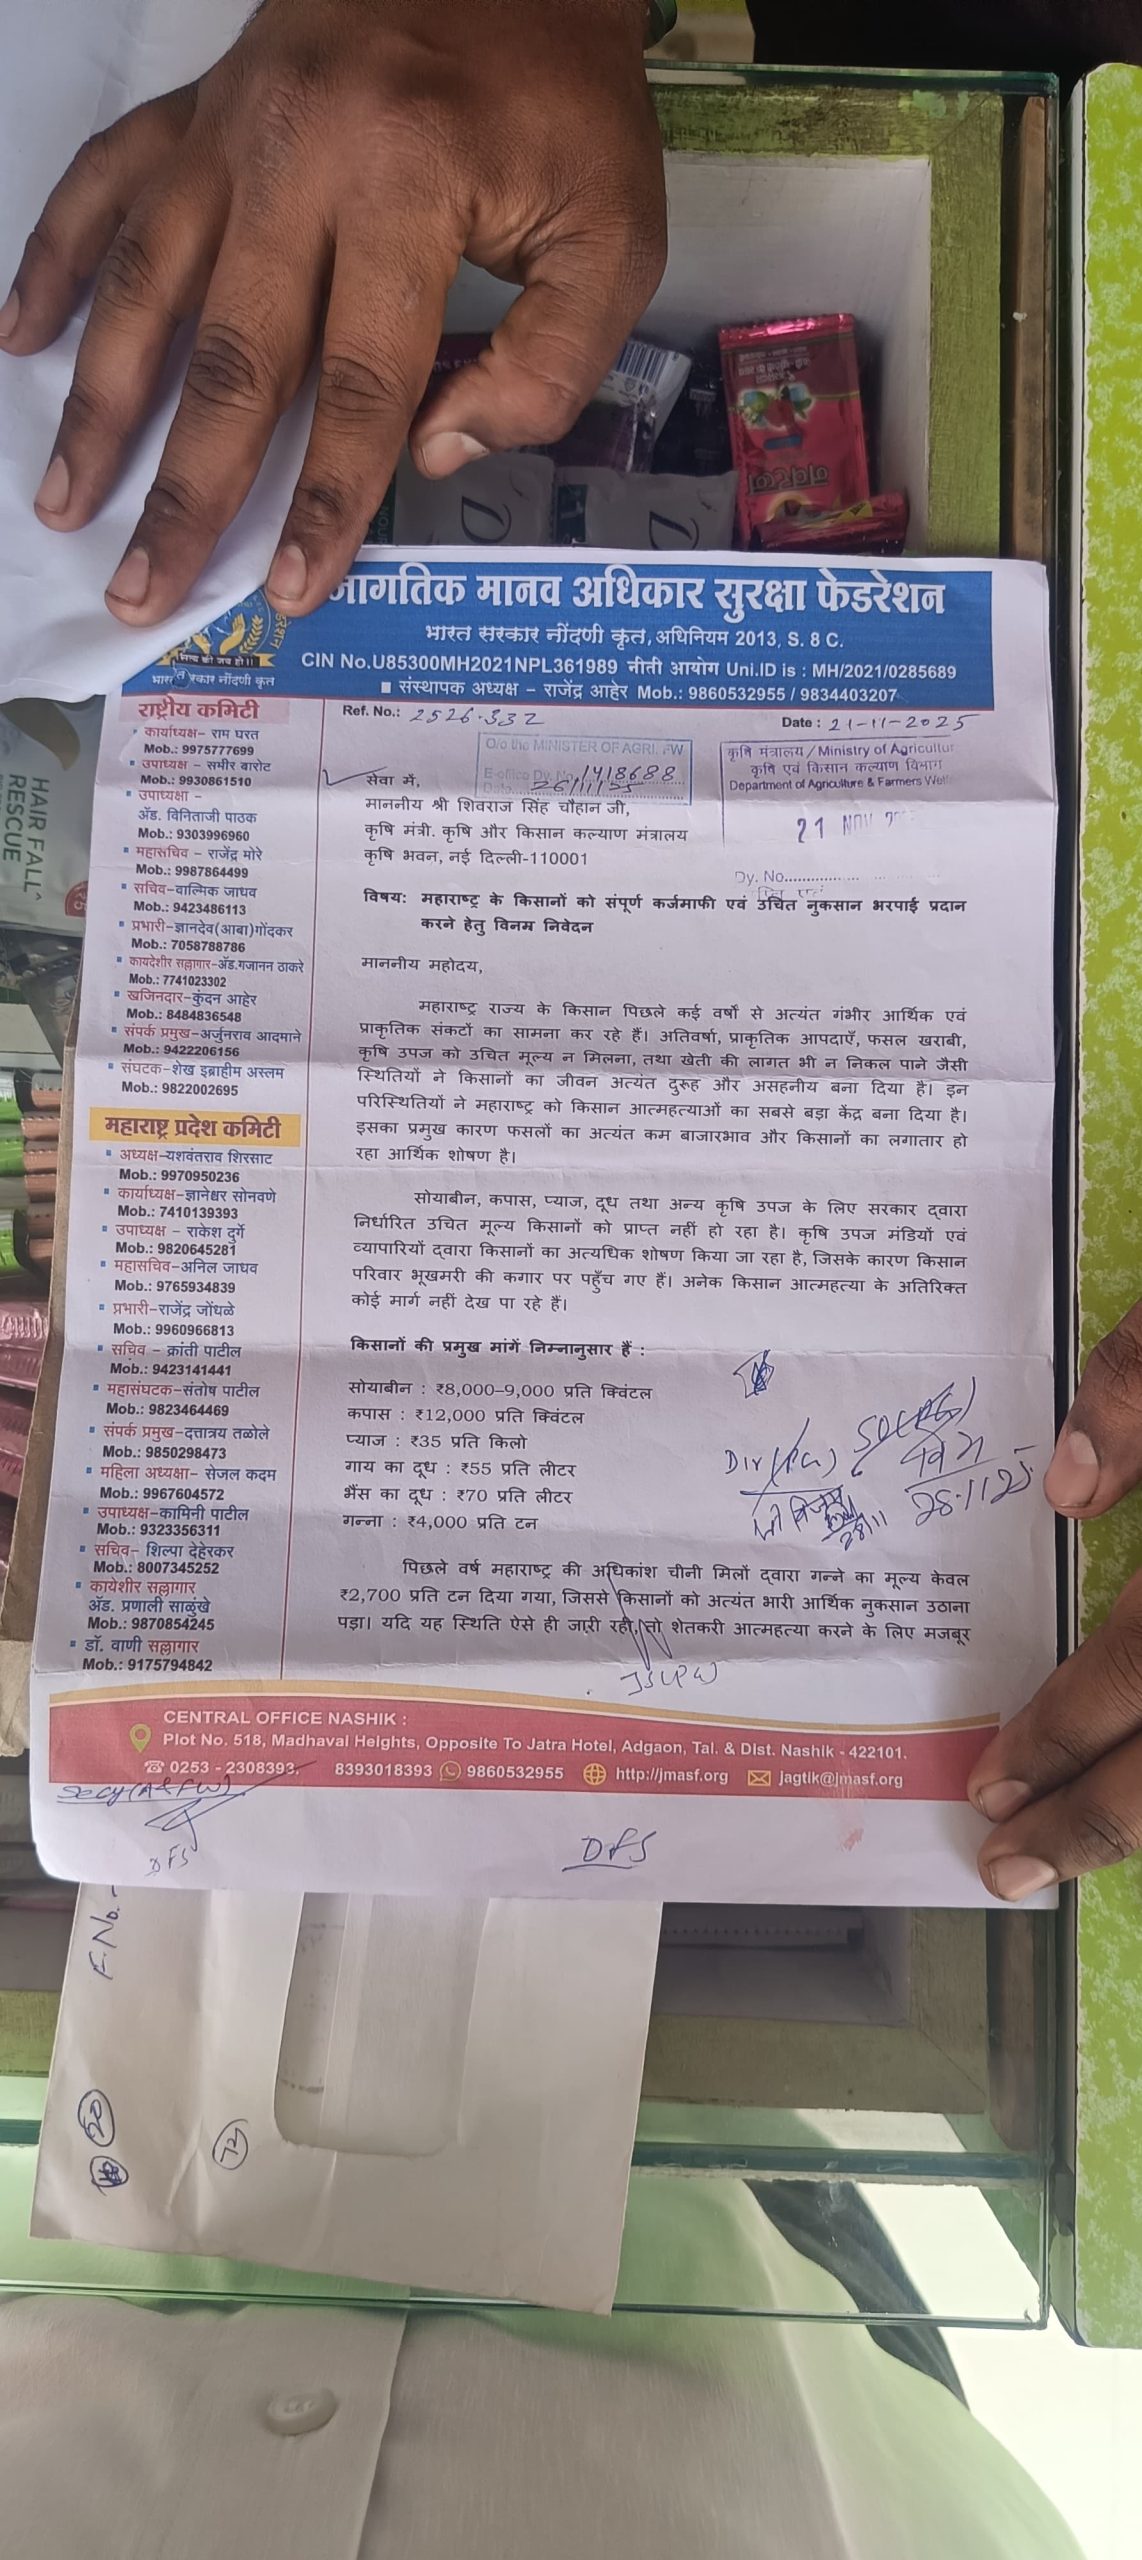 जागतिक मानव अधिकार सुरक्षा फेडरेशन
भारत सरकार नोंदणी कृत, अधिनियम 2013, S. 8 C.
CIN No.U85300MH2021NPL361989 नीती आयोग Uni.ID is : MH/2021/0285689
■ संस्थापक अध्यक्ष – राजेंद्र आहेर Mob.: 9860532955 / 9834403207
भारत सरकार नोंदणी कृत
राष्ट्रीय कमिटी
कार्याध्यक्ष– राम घरत
Mob.: 9975777699
उपाध्यक्ष – समीर बारोट
Mob.: 9930861510
उपाध्यक्षा –
ॲड. विनिताजी पाठक
Mob.: 9303996960
महासचिव – राजेंद्र मोरे
Mob.: 9987864499
सचिव–वाल्मिक जाधव
Mob.: 9423486113
प्रभारी–ज्ञानदेव(आबा)गोंदकर
Mob.: 7058788786
कायदेशीर सल्लागार–ॲड.गजानन ठाकरे
Mob.: 7741023302
खजिनदार–कुंदन आहेर
Mob.: 8484836548
संपर्क प्रमुख–अर्जुनराव आदमाने
Mob.: 9422206156
संघटक–शेख इब्राहीम अस्लम
Mob.: 9822002695
महाराष्ट्र प्रदेश कमिटी
अध्यक्ष–यशवंतराव शिरसाट
Mob.: 9970950236
कार्याध्यक्ष–ज्ञानेश्वर सोनवणे
Mob.: 7410139393
उपाध्यक्ष – राकेश दुर्गे
Mob.: 9820645281
महासचिव–अनिल जाधव
Mob.: 9765934839
प्रभारी–राजेंद्र जोंधळे
Mob.: 9960966813
सचिव – क्रांती पाटील
Mob.: 9423141441
महासंघटक–संतोष पाटील
Mob.: 9823464469
संपर्क प्रमुख–दत्तात्रय तळोले
Mob.: 9850298473
महिला अध्यक्षा– सेजल कदम
Mob.: 9967604572
उपाध्यक्ष–कामिनी पाटील
Mob.: 9323356311
सचिव– शिल्पा देहेरकर
Mob.: 8007345252
कायेशीर सल्लागार
ॲड. प्रणाली साळुंखे
Mob.: 9870854245
डॉ. वाणी सल्लागार
Mob.: 9175794842
Ref. No.: 2526.332
Date : 21-11-2025
O/o the MINISTER OF AGRI. FW
E-office Dy. No. 1418688
Date 26/11/25
कृषि मंत्रालय / Ministry of Agricultur
कृषि एवं किसान कल्याण विभाग
Department of Agriculture & Farmers Welf
21 NOV
Dy. No.
सेवा में,
माननीय श्री शिवराज सिंह चौहान जी,
कृषि मंत्री. कृषि और किसान कल्याण मंत्रालय
कृषि भवन, नई दिल्ली-110001
विषय: महाराष्ट्र के किसानों को संपूर्ण कर्जमाफी एवं उचित नुकसान भरपाई प्रदान
करने हेतु विनम्र निवेदन
माननीय महोदय,
महाराष्ट्र राज्य के किसान पिछले कई वर्षों से अत्यंत गंभीर आर्थिक एवं
प्राकृतिक संकटों का सामना कर रहे हैं। अतिवर्षा, प्राकृतिक आपदाएँ, फसल खराबी,
कृषि उपज को उचित मूल्य न मिलना, तथा खेती की लागत भी न निकल पाने जैसी
स्थितियों ने किसानों का जीवन अत्यंत दुरूह और असहनीय बना दिया है। इन
परिस्थितियों ने महाराष्ट्र को किसान आत्महत्याओं का सबसे बड़ा केंद्र बना दिया है।
इसका प्रमुख कारण फसलों का अत्यंत कम बाजारभाव और किसानों का लगातार हो
रहा आर्थिक शोषण है।
सोयाबीन, कपास, प्याज, दूध तथा अन्य कृषि उपज के लिए सरकार द्वारा
निर्धारित उचित मूल्य किसानों को प्राप्त नहीं हो रहा है। कृषि उपज मंडियों एवं
व्यापारियों द्वारा किसानों का अत्यधिक शोषण किया जा रहा है, जिसके कारण किसान
परिवार भूखमरी की कगार पर पहुँच गए हैं। अनेक किसान आत्महत्या के अतिरिक्त
कोई मार्ग नहीं देख पा रहे हैं।
किसानों की प्रमुख मांगें निम्नानुसार हैं :
सोयाबीन : ₹8,000–9,000 प्रति क्विंटल
कपास : ₹12,000 प्रति क्विंटल
प्याज : ₹35 प्रति किलो
गाय का दूध : ₹55 प्रति लीटर
भैंस का दूध : ₹70 प्रति लीटर
गन्ना : ₹4,000 प्रति टन
28.11.25
28/11
पिछले वर्ष महाराष्ट्र की अधिकांश चीनी मिलों द्वारा गन्ने का मूल्य केवल
₹2,700 प्रति टन दिया गया, जिससे किसानों को अत्यंत भारी आर्थिक नुकसान उठाना
पड़ा। यदि यह स्थिति ऐसे ही जारी रही, तो शेतकरी आत्महत्या करने के लिए मजबूर
CENTRAL OFFICE NASHIK :
Plot No. 518, Madhaval Heights, Opposite To Jatra Hotel, Adgaon, Tal. & Dist. Nashik - 422101.
0253 - 2308393. 8393018393 9860532955 http://jmasf.org jagtik@jmasf.org
Secy (A&FW)
DFS
DFS
F. No. -
HAIR FALL
RESCUE